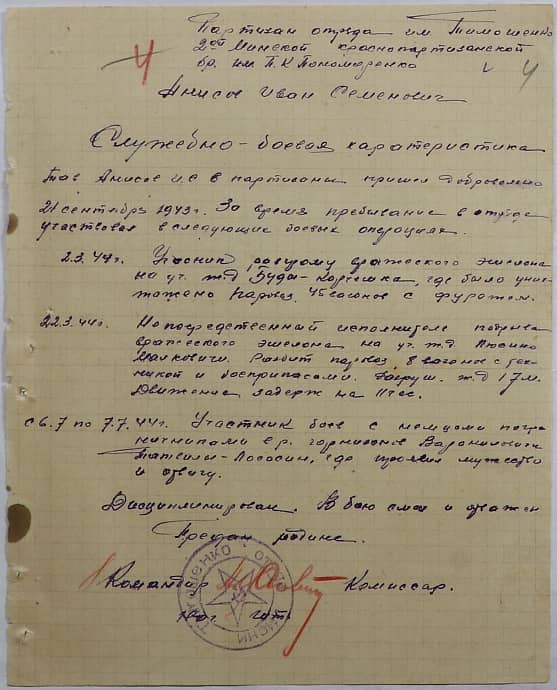 Партизан отряда им Тимошенко
2ой Минской краснопартизанской
бр. им П.К Пономаренко
4 4
Анисов Иван Семенович
Служебно-боевая характеристика
Тов Анисов И.С в партизаны пришел добровольно
21 сентября 1943г. За время пребывание в отряде
участвовал в следующих боевых операциях.
2.3.44г. Участник вражеского эшелона
на уч. ж.д Буды-, где было унич-
тожено паровоз, с фуражем.
22.3.44г. Непосредственный исполнитель подрыва
вражеского эшелона на уч. ж.д Люсино
Мальковичи. Разбит паровоз 8 вагонов с тех-
никой и боеприпасами. ж.д 17м.
Движение задерж на 11 час.
с 6.7 по 7.7.44г. Участник боев с немцами
в р.
, где проявил мужество
и отвагу.
Дисциплинирован. В бою смел и отважен
Предан родине.
Командир Комиссар.
ТИМОШЕНКО